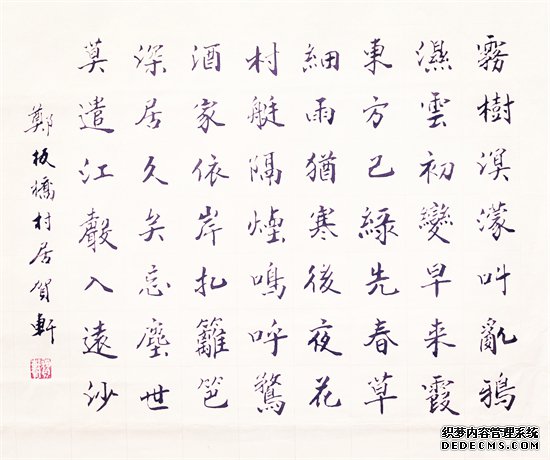 霧樹溟濛叫亂鴉
濕雲初變早来霞
東方已綠先春草
細雨猶寒後夜花
村艇隔煙鳴呼鶩
酒家依岸扎籬笆
深居久矣忘塵世
莫遣江聲入遠沙
鄭板橋村居賀軒
织梦内容管理系统
DEDECMS.COM